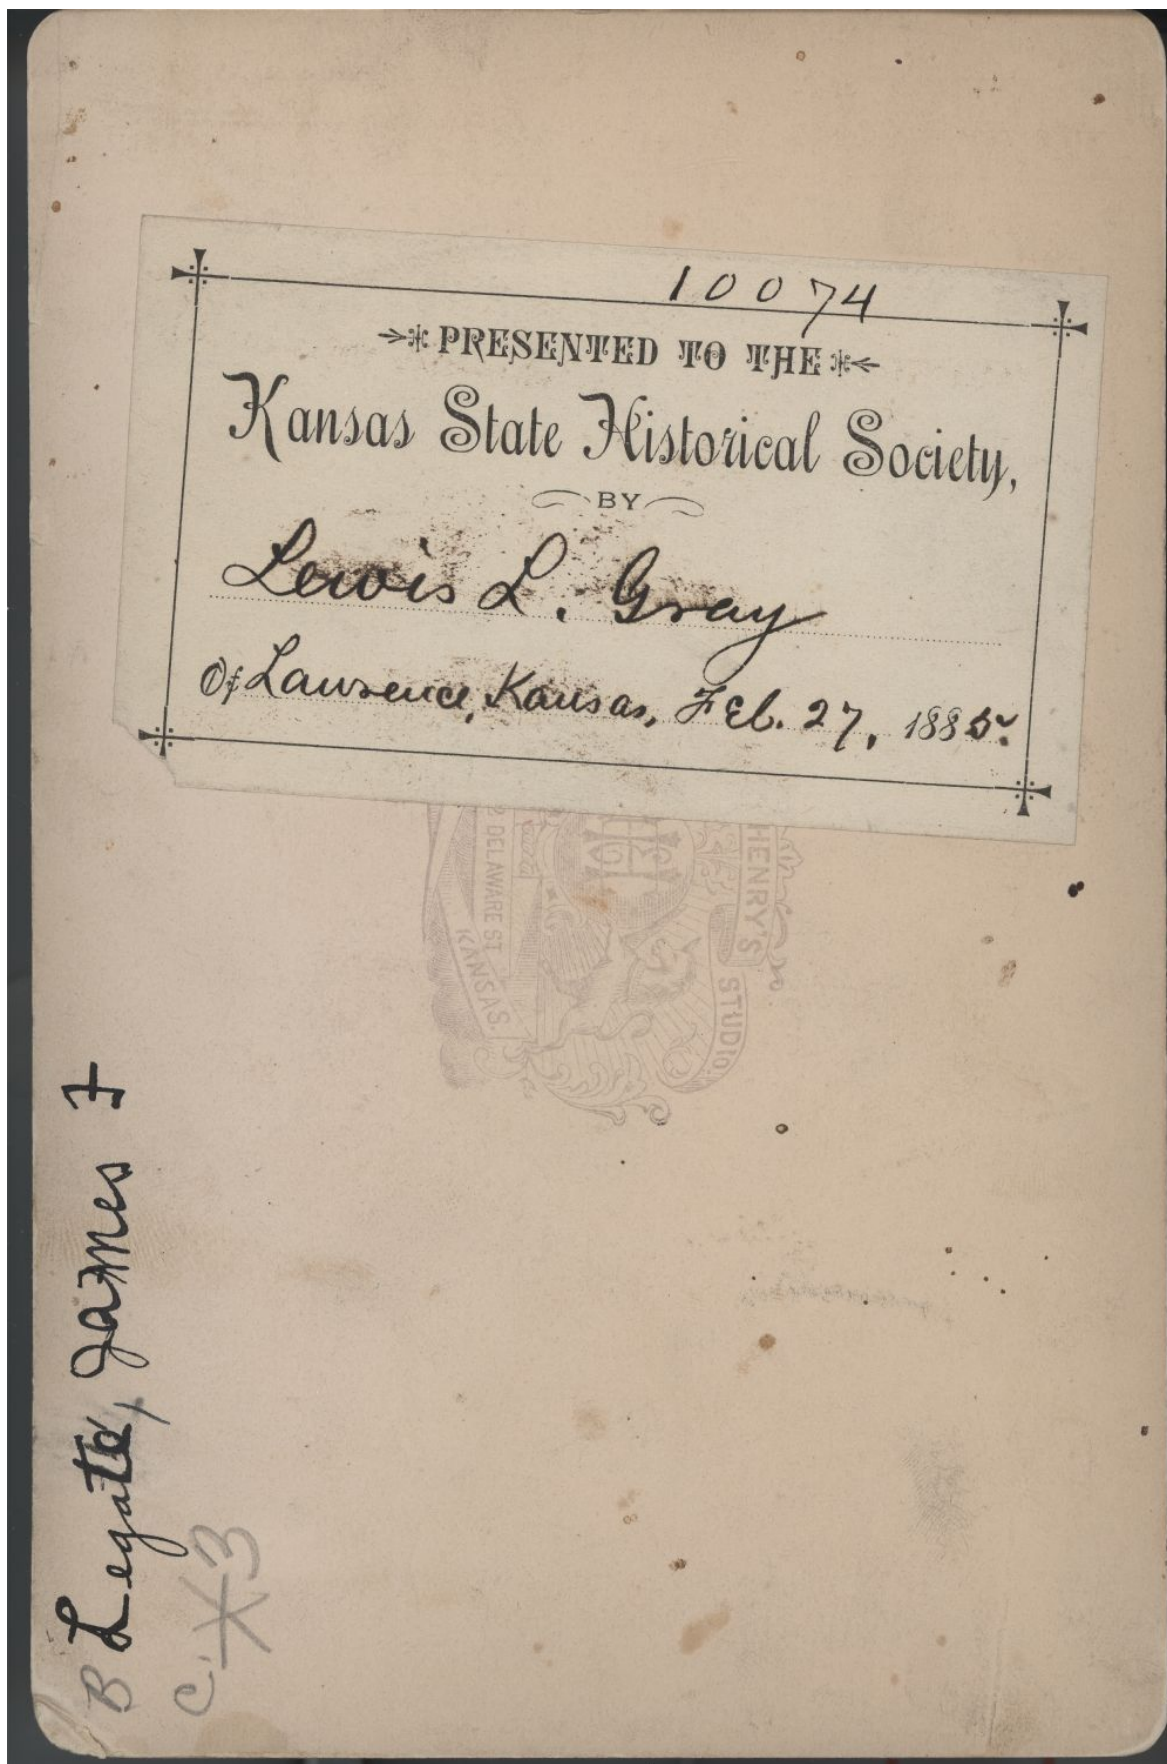 10074
PRESENTED TO THE
Kansas State Historical Society,
BY
Lewis L. Gray
Of Lawrence, Kansas, Feb. 27, 1885.
HENRY'S STUDIO.
2 DELAWARE ST.
KANSAS.
B Legate, James F
C. 3